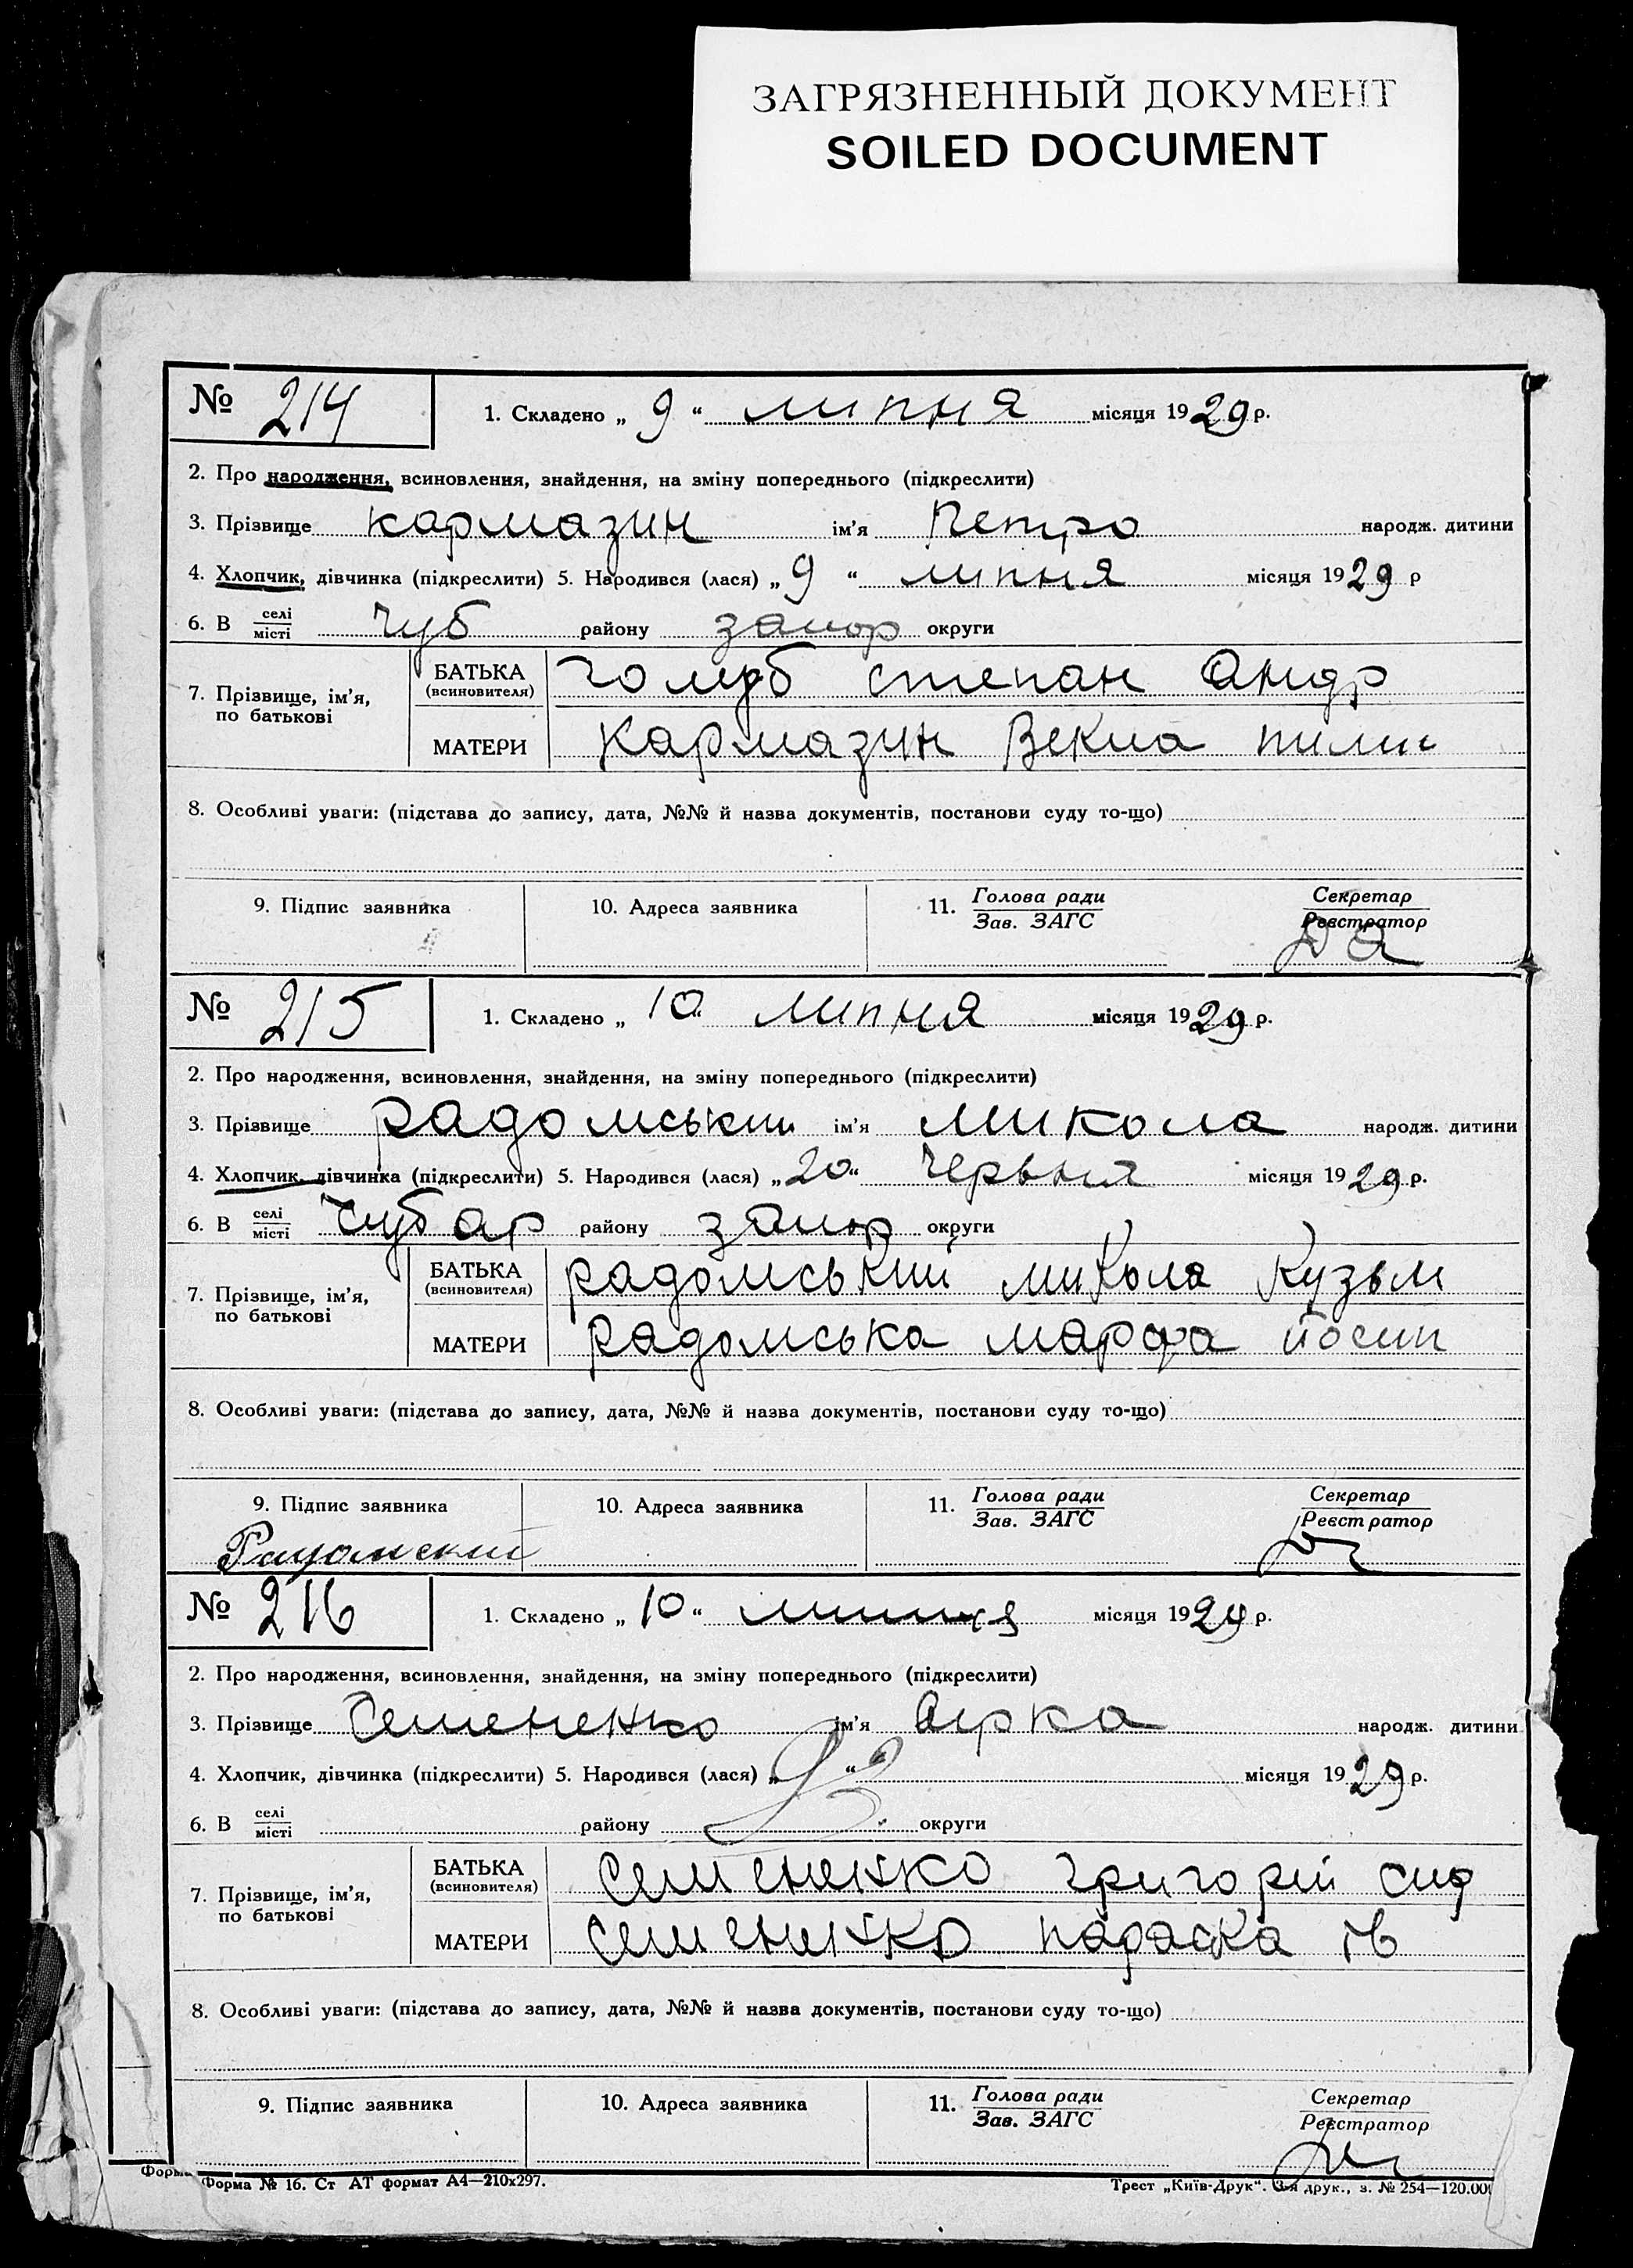 ЗАГРЯЗНЕННЫЙ ДОКУМЕНТ
SOILED DOCUMENT
№ 214
1. Складено „ 9 “ липня місяця 1929 р.
2. Про народження, всиновлення, знайдення, на зміну попереднього (підкреслити)
3. Прізвище кармазин ім’я Петро народж. дитини
4. Хлопчик, дівчинка (підкреслити) 5. Народився (лася) „ 9 “ липня місяця 1929 р
6. В селі/місті Чуб району запор округи
7. Прізвище, ім’я, по батькові
БАТЬКА (всиновителя) голуб степан Андр
МАТЕРИ Кармазин Векла пилип
8. Особливі уваги: (підстава до запису, дата, №№ й назва документів, постанови суду то-що)
9. Підпис заявника 10. Адреса заявника 11. Голова ради/Зав. ЗАГС Секретар/Реєстратор
№ 215
1. Складено „ 10 “ липня місяця 1929 р.
2. Про народження, всиновлення, знайдення, на зміну попереднього (підкреслити)
3. Прізвище радомський ім’я микола народж. дитини
4. Хлопчик, дівчинка (підкреслити) 5. Народився (лася) „ 20 “ Червня місяця 1929 р.
6. В селі/місті Чубар району запор округи
7. Прізвище, ім’я, по батькові
БАТЬКА (всиновителя) радомський микола Кузьм
МАТЕРИ радомська марфа йосип
8. Особливі уваги: (підстава до запису, дата, №№ й назва документів, постанови суду то-що)
9. Підпис заявника 10. Адреса заявника 11. Голова ради/Зав. ЗАГС Секретар/Реєстратор
Радомский
№ 216
1. Складено „ 10 “ липня місяця 1929 р.
2. Про народження, всиновлення, знайдення, на зміну попереднього (підкреслити)
3. Прізвище Семененко ім’я народж. дитини
4. Хлопчик, дівчинка (підкреслити) 5. Народився (лася) „ “ місяця 1929 р.
6. В селі/місті району округи
7. Прізвище, ім’я, по батькові
БАТЬКА (всиновителя) Семененко григорій сид
МАТЕРИ Семененко параска Ів
8. Особливі уваги: (підстава до запису, дата, №№ й назва документів, постанови суду то-що)
9. Підпис заявника 10. Адреса заявника 11. Голова ради/Зав. ЗАГС Секретар/Реєстратор
Форма № 16. Ст АТ формат А4—210х297. Трест „Київ-Друк“. 3-я друк., з. № 254—120.000